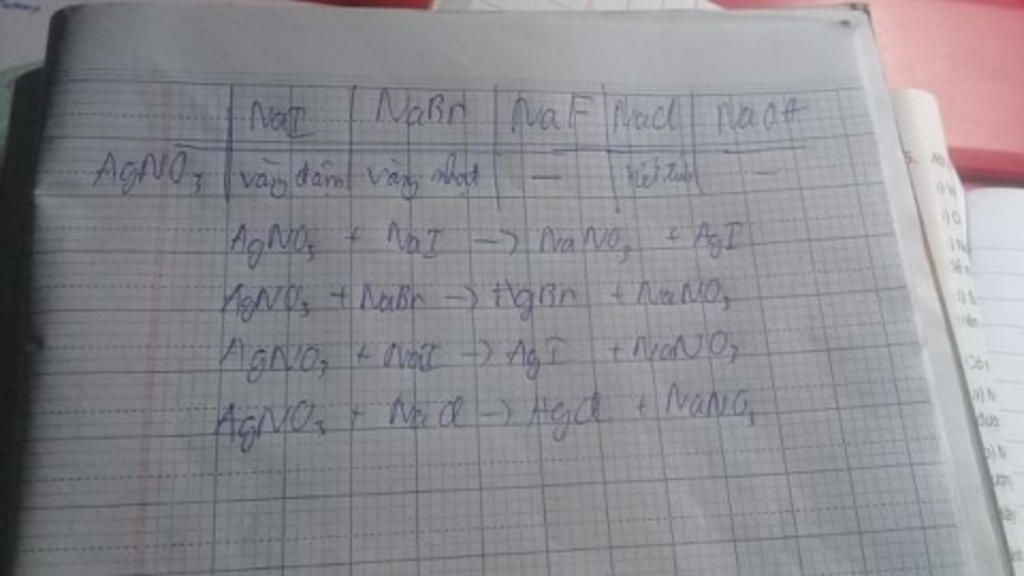 NaI NaBr NaF NaCl NaOH
AgNO3 vàng đậm vàng nhạt — kết tủa —
AgNO3 + NaI -> NaNO3 + AgI
AgNO3 + NaBr -> AgBr + NaNO3
AgNO3 + NaI -> AgI + NaNO3
AgNO3 + NaCl -> AgCl + NaNO3